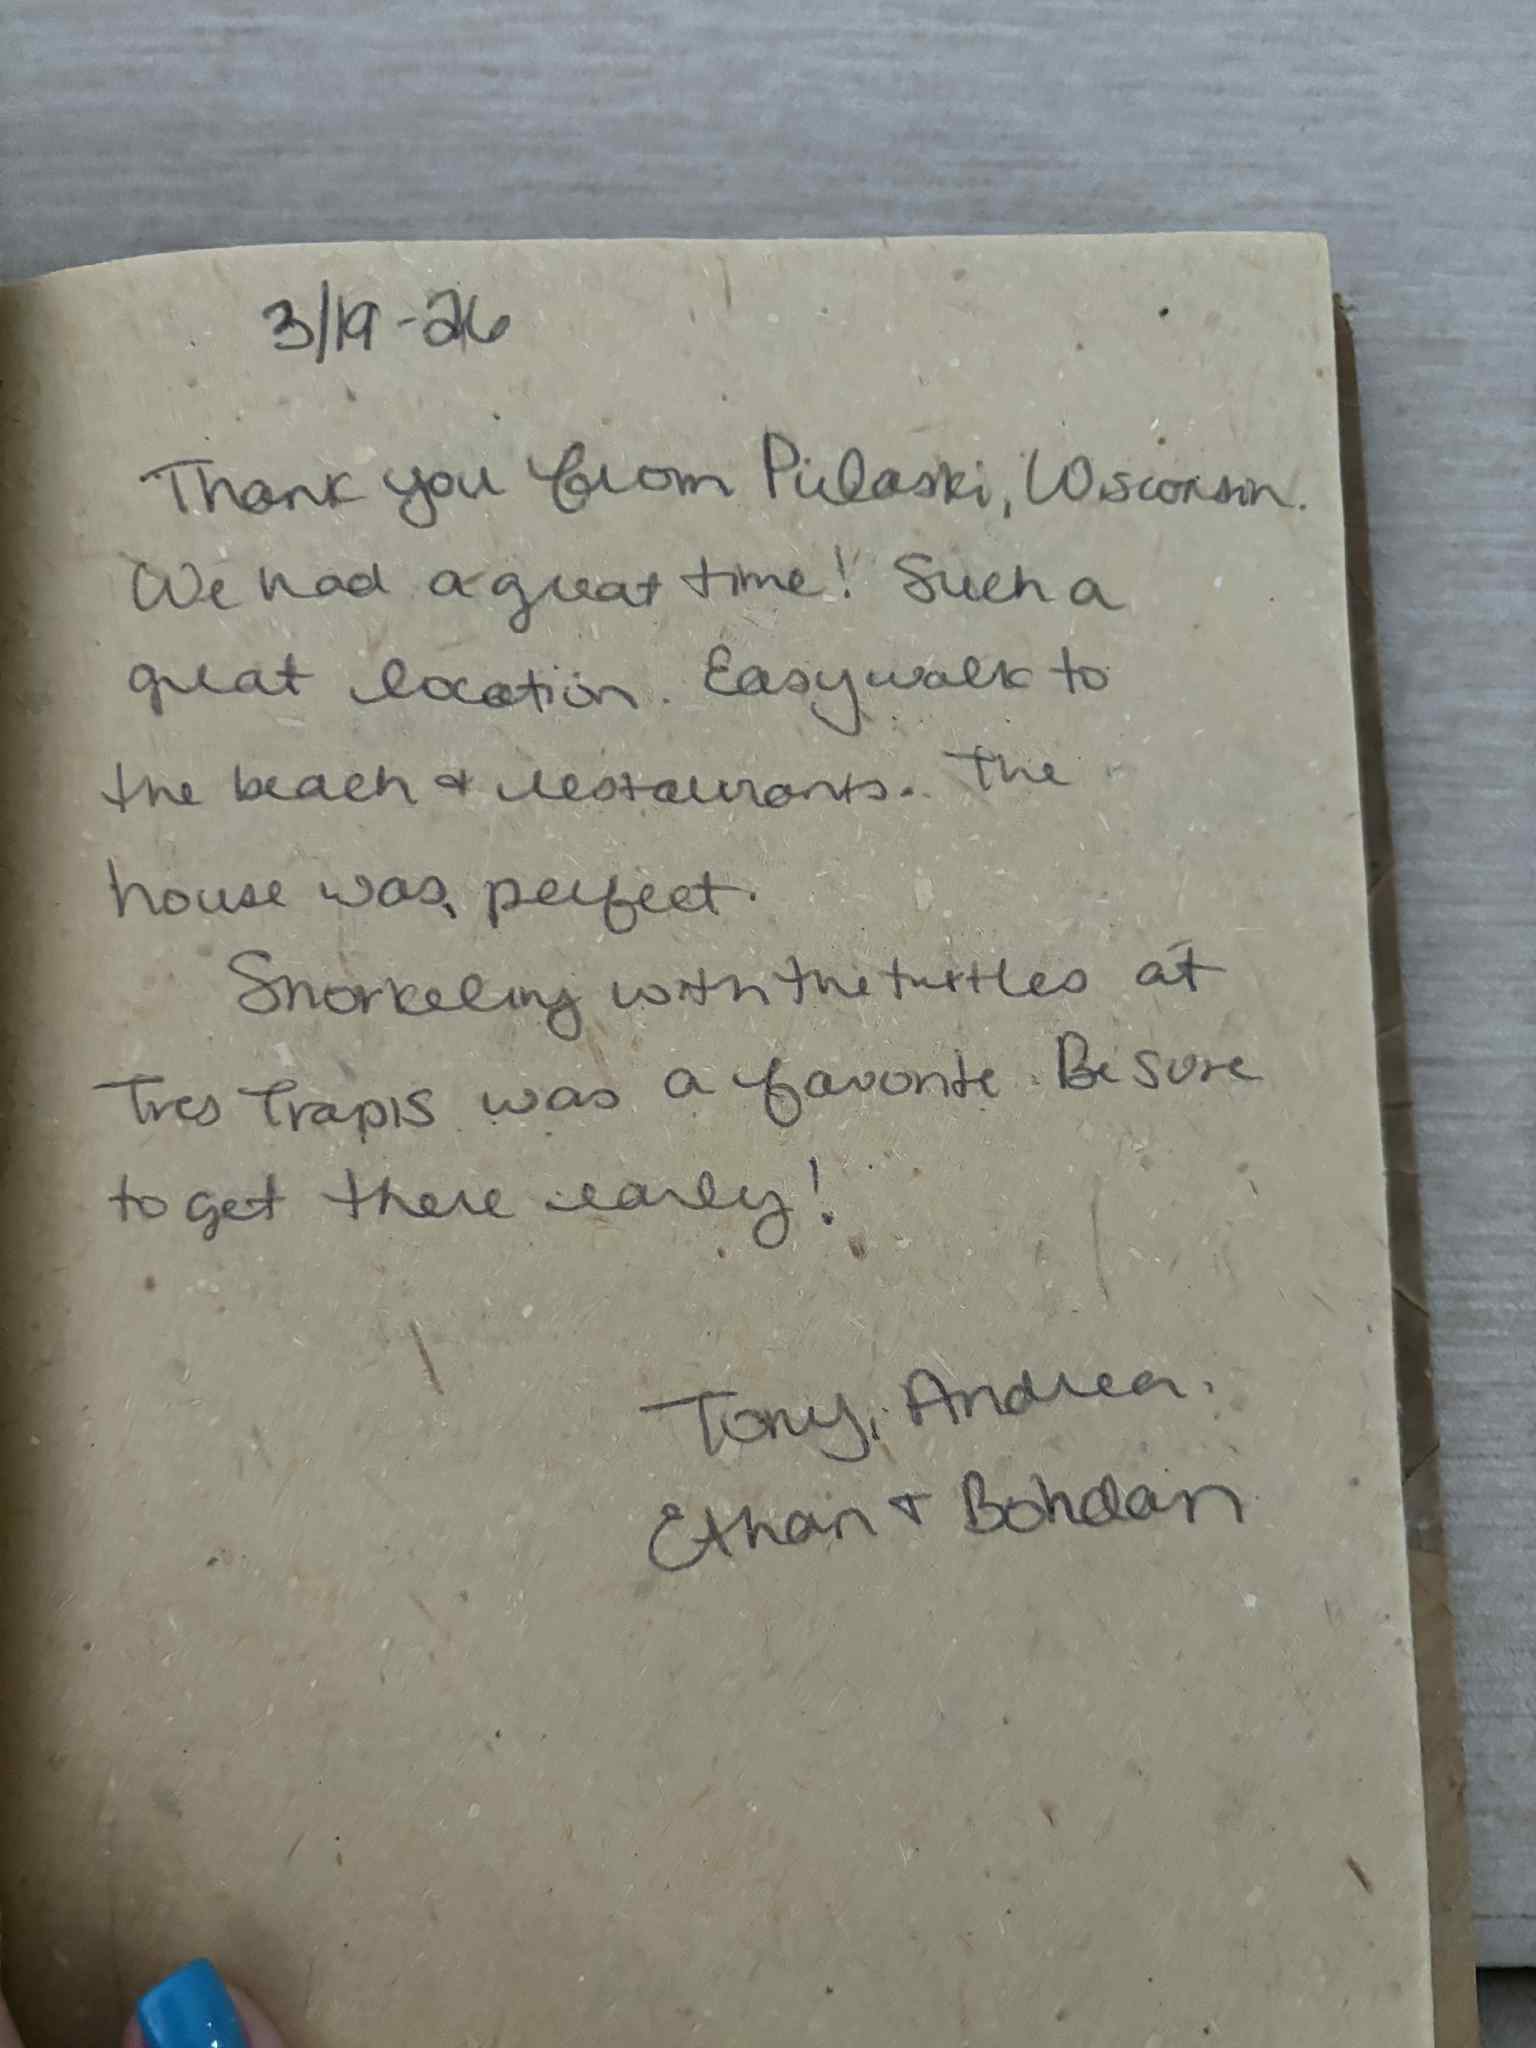 3/19-26
Thank you from Pulaski, Wisconsin.
We had a great time! Such a
great location. Easy walk to
the beach + restaurants. The
house was perfect.
Snorkeling with the turtles at
Tres Trapis was a favorite. Be sure
to get there early!
Tony, Andrea.
Ethan + Bohdan